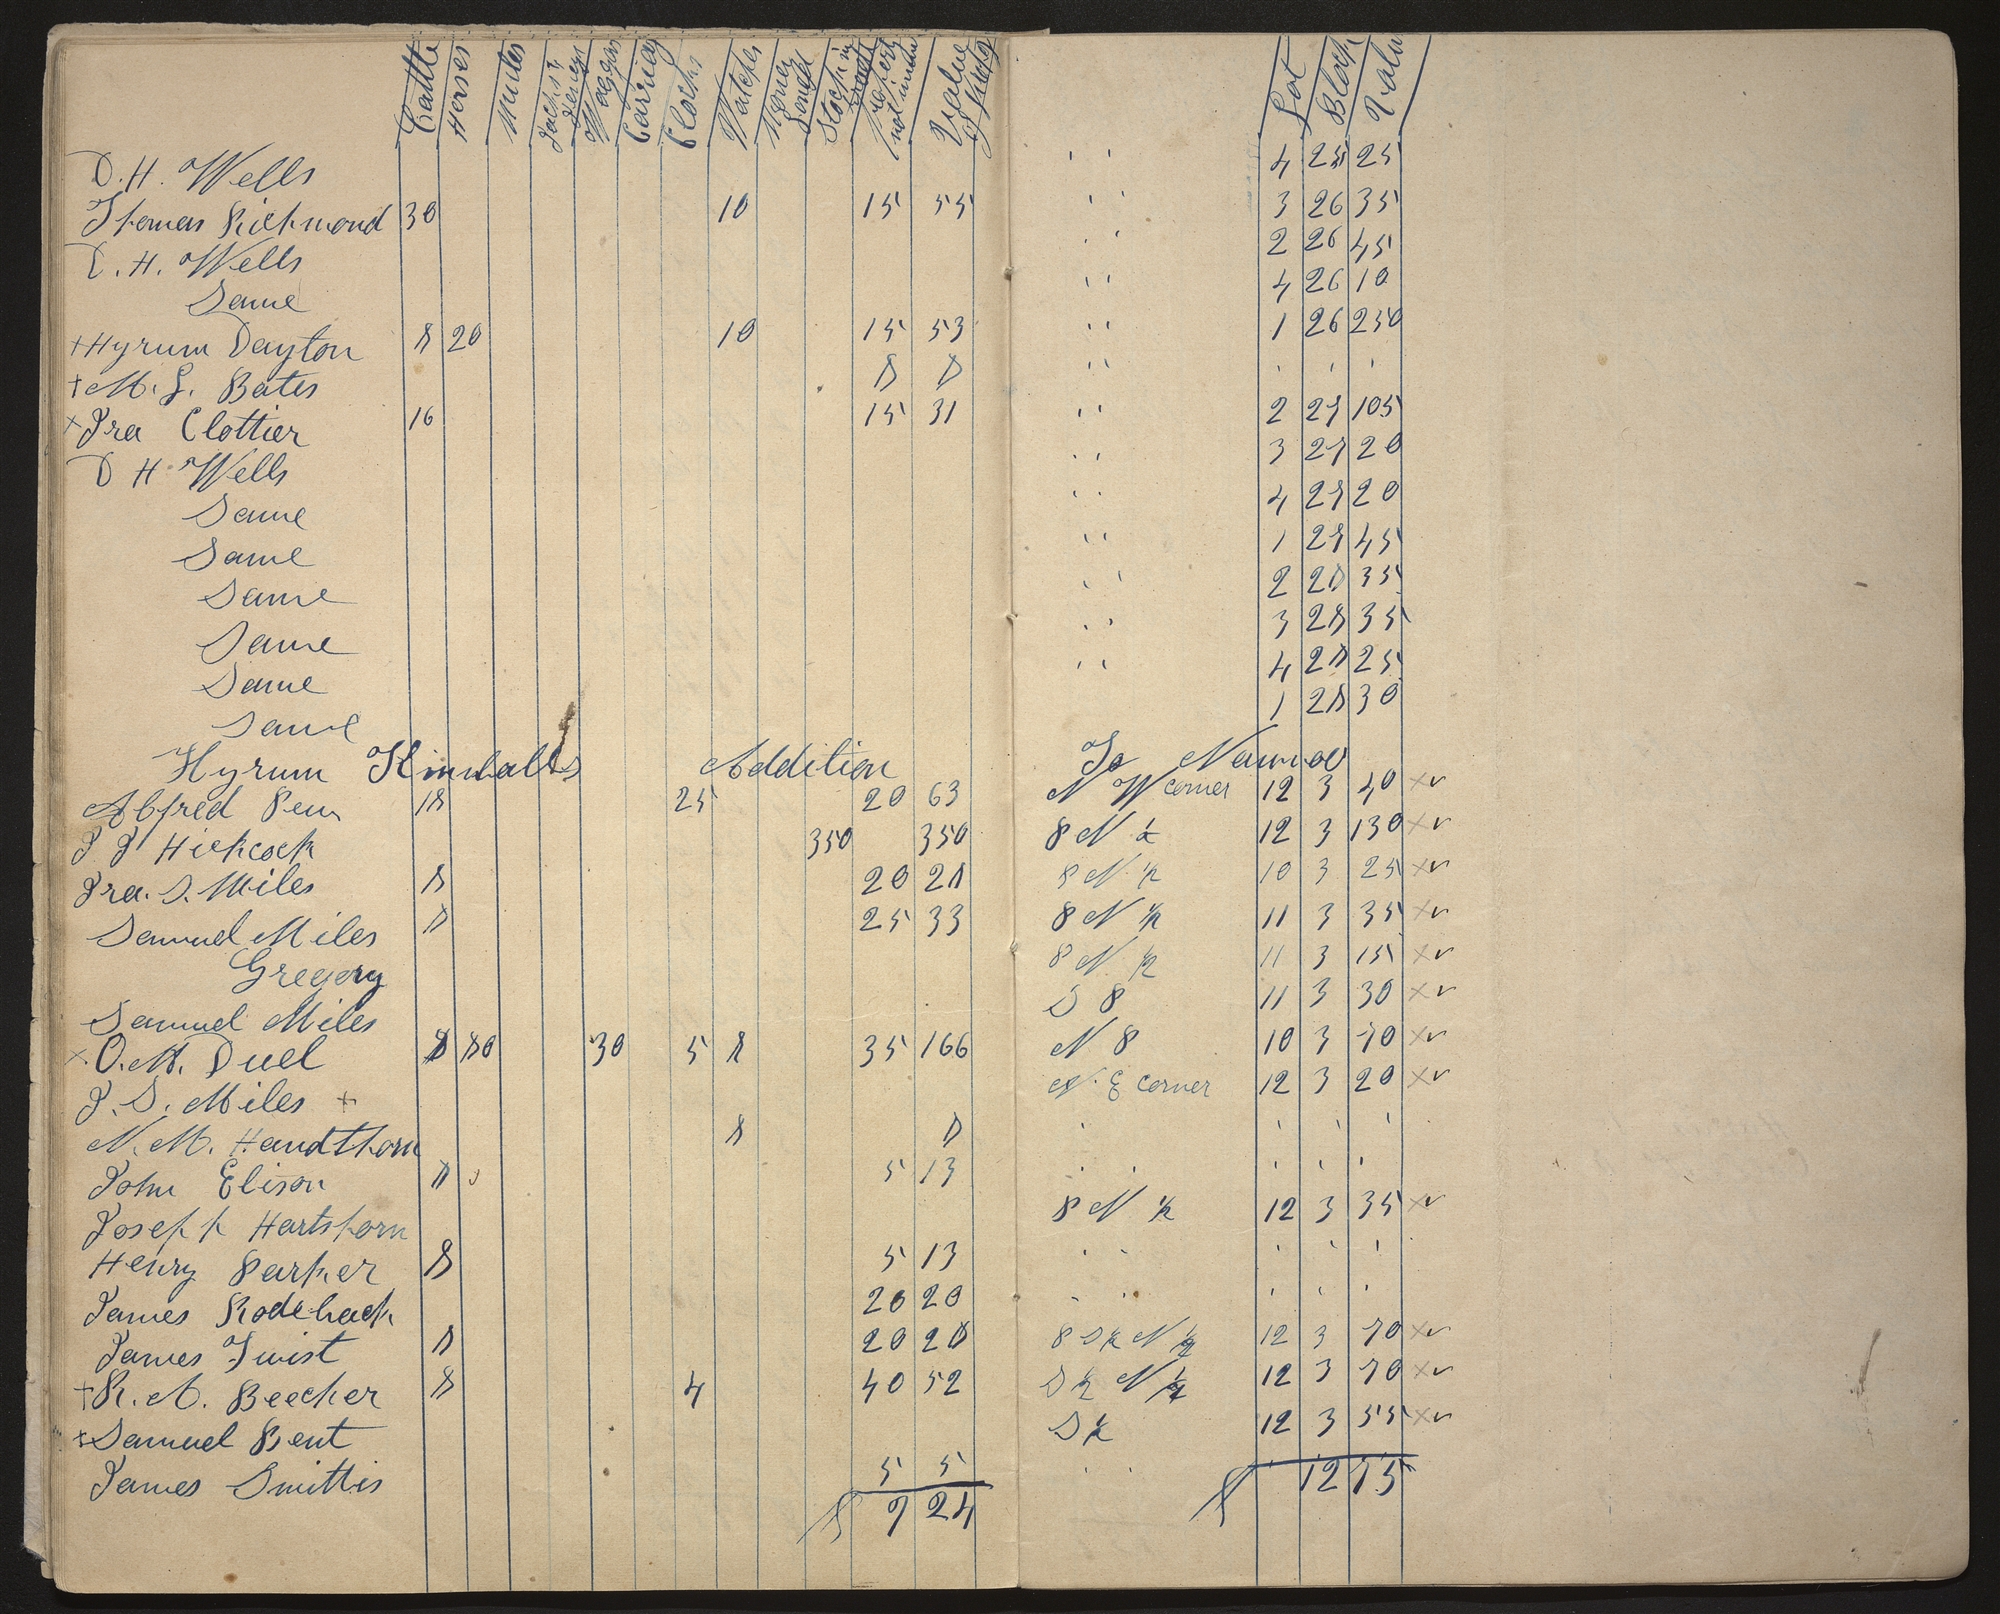 Cattle Horses Mules Jacks & Jennys Waggons Carriag Clocks Watches Money Loned Stock in Trade Property not inum Value of Property Lot Block Valu
D. H. Wells " 4 25 25
Thomas Richmond 30 10 15 55 " 3 26 35
D. H. Wells " 2 26 45
Same " 4 26 10
+ Hyrum Dayton 8 20 10 15 53 " 1 26 250
+ M. L. Bates 8 8 " ' ' '
× Ira Clottier 16 15 31 " 2 27 105
D H Wells " 3 27 20
Same " 4 27 20
Same " 1 27 45
Same " 2 28 35
Same " 3 28 35
Same " 4 28 25
Same 1 28 30
Hyrum Kimballs Addition To Nauvoo
Alfred Pew 18 25 20 63 N W corner 12 3 40 ×✓
J J Hickcock 350 350 8 N ½ 12 3 130 ×✓
Ira. S. Miles 8 20 28 8 N ½ 10 3 25 ×✓
Samuel Miles 8 25 33 8 N ½ 11 3 35 ×✓
Gregory 8 N ½ 11 3 15 ×✓
Samuel Miles S 8 11 3 30 ×✓
× O. M. Duel 8 80 30 5 8 35 166 N 8 10 3 70 ×✓
I. S. Miles + N. E corner 12 3 20 ×✓
N. M. Handthorn 8 8 ' ' ' '
John Elison 8 5 13 " ' ' '
Joseph Hartshorn 8 N ½ 12 3 35 ×✓
Henry Parker 8 5 13 " ' ' '
James Rodeback 20 20 " ' ' '
James Twist 8 20 28 8 S½ N ½ 12 3 70 ×✓
+ R. A. Beecher 8 4 40 52 S ½ N ½ 12 3 70 ×✓
+ Samuel Bent S ½ 12 3 55 ×✓
James Smittis 5 5 "
$ 924 $ 1275